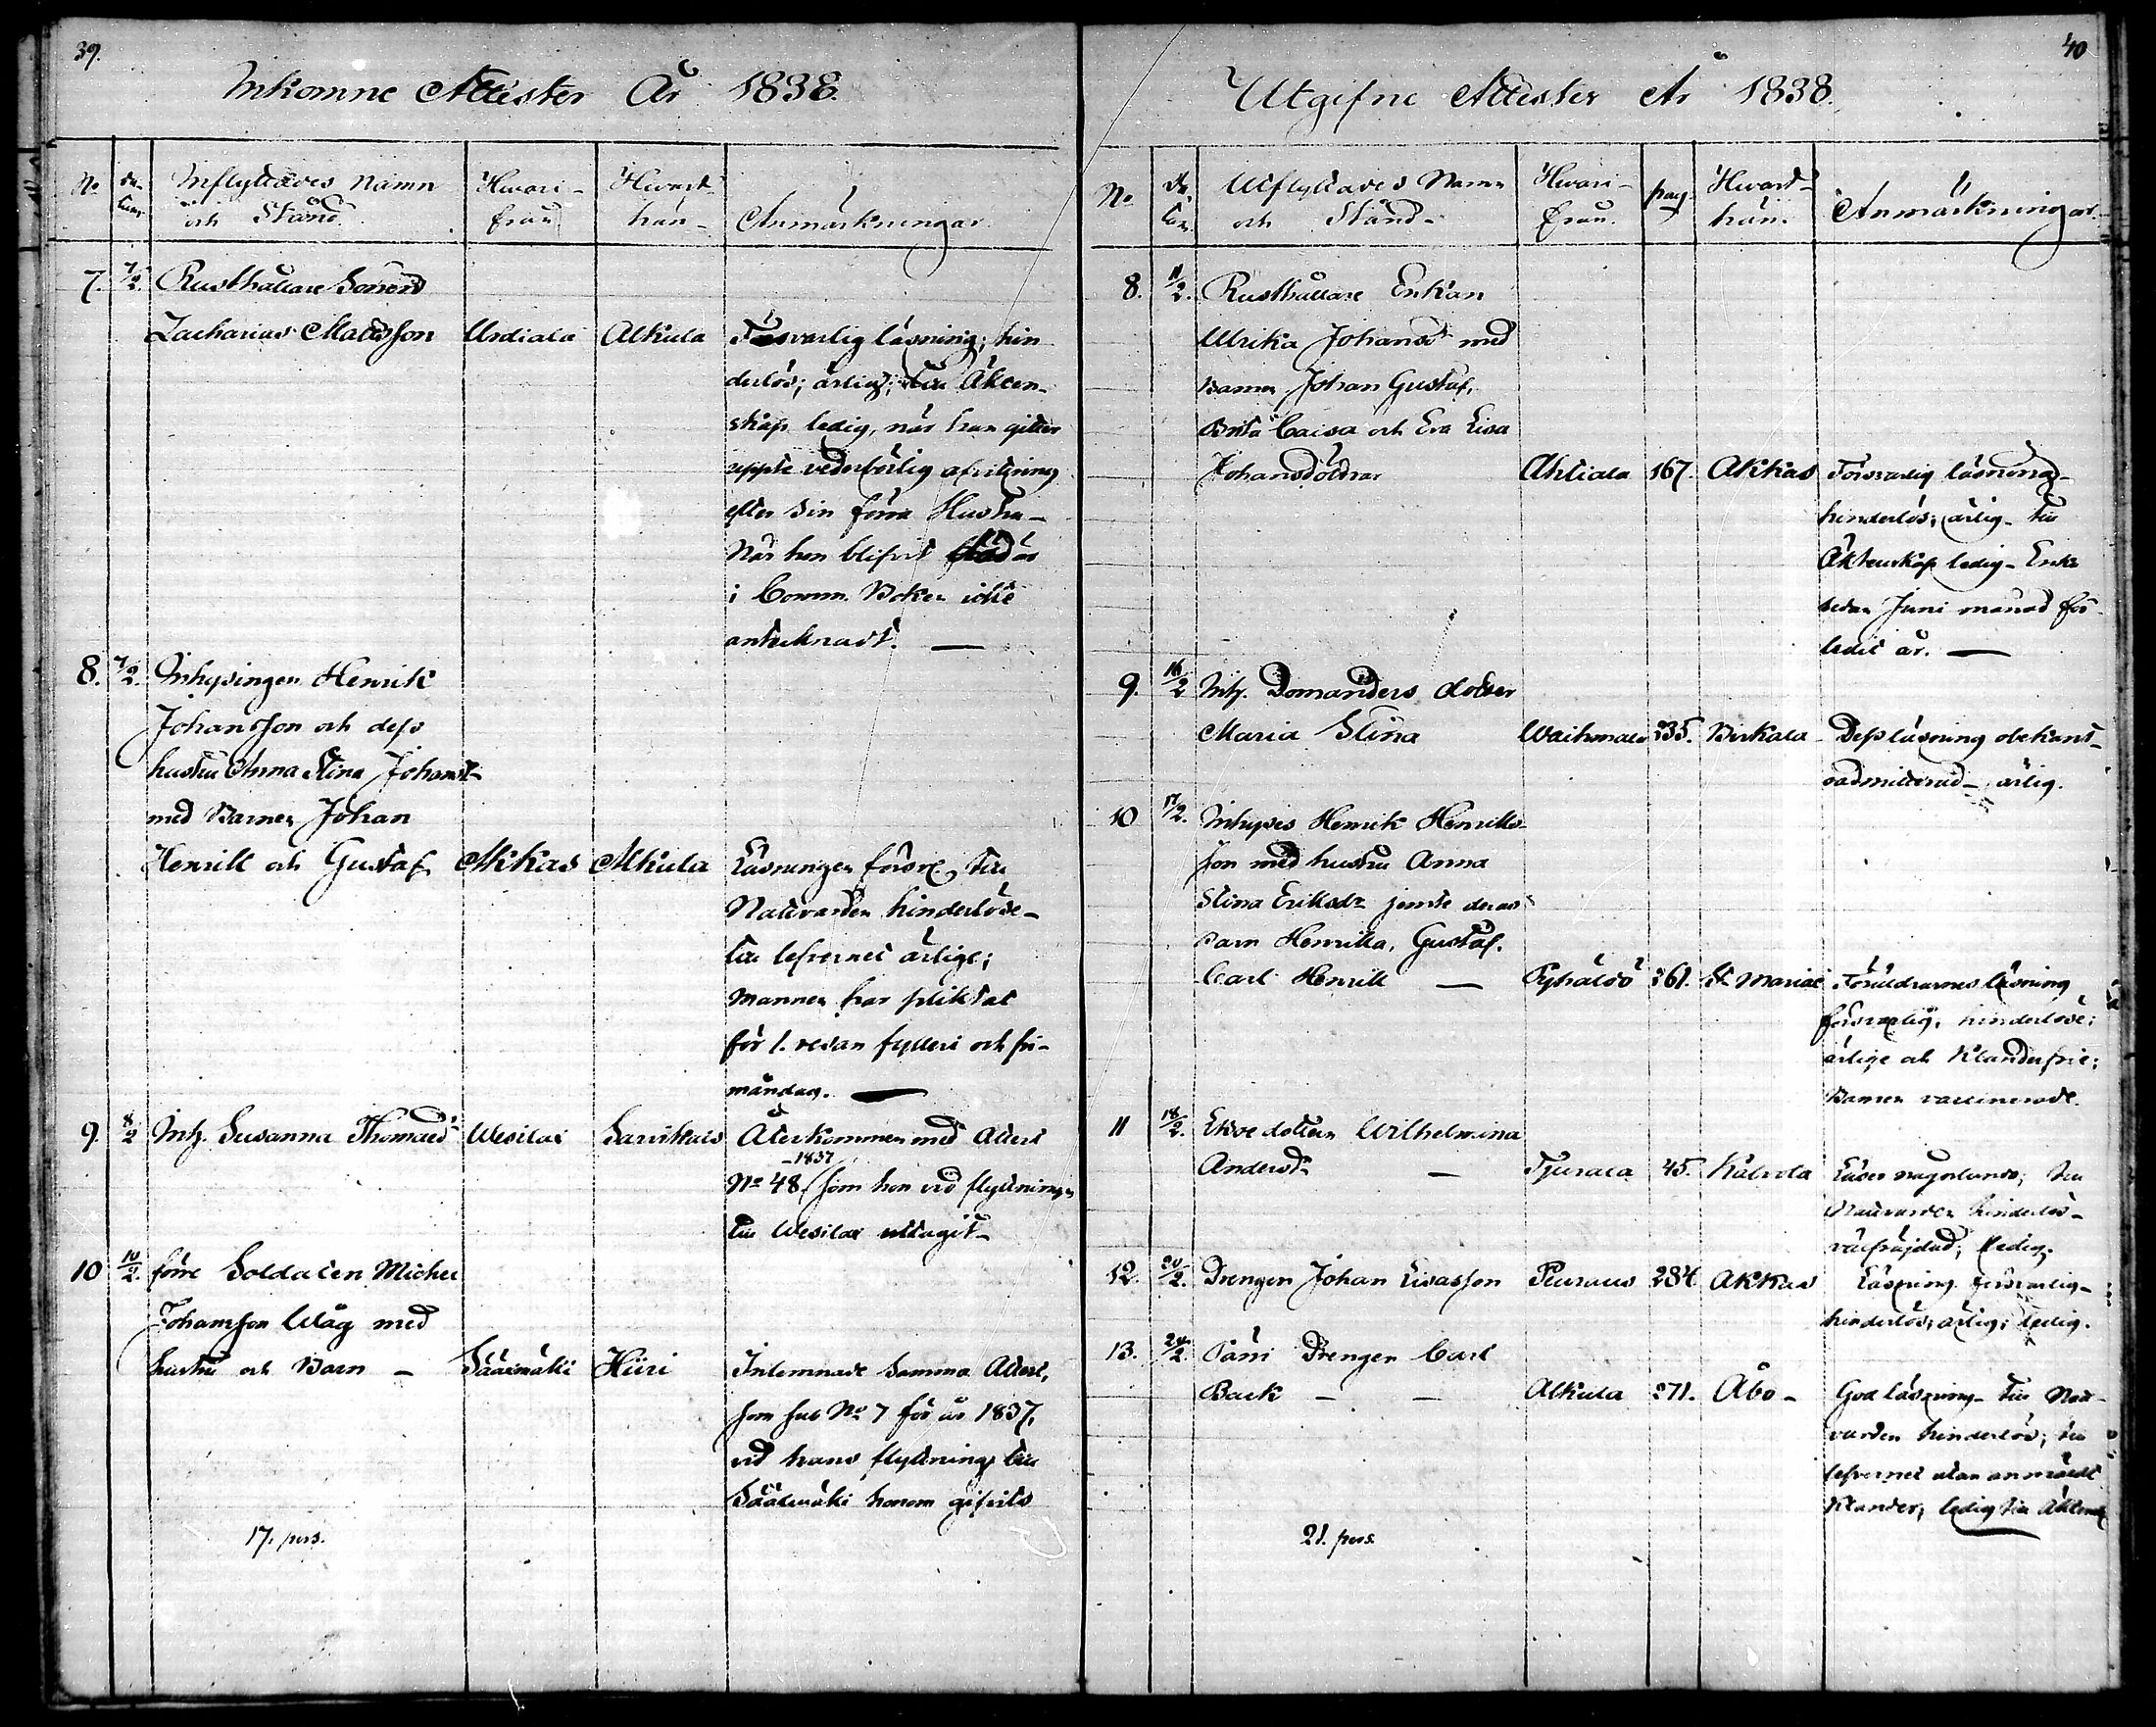 39.
Inkomne Attester År 1838.
No
da-
tum
Inflyttades namn
och Stånd
Hvari-
från
Hvart-
hän-
Anmärkningar.
7. 7/2. Rusthållare Sonen
Zacharias Mattsson Urdiala Alkula Försvarlig läsning; hin
derlös; ärlig; till Äkten-
skap ledig, när han gitter
uppte vederbörlig afvittring
efter sin förra Hustru-
När hon blifvit är
i Comm. Boken icke
antecknadt. —
8. 7/2. Inhysingen Henrik
Johansson och dess
hustru Anna Stina Johansd-
med Barnen Johan
Henrik och Gustaf Akkas Alkula Läsningen försv. till
Nattvarden hinderlöse-
till lefvernet ärlige;
mannen har pliktat
för 1. resan fylleri och fri-
måndag. —
9. 8/2 Inh. Susanna Thomasd Wesilax Sarvikais Återkommen med Attest
-1837
No 48, som hon vid flyttningen
till Wesilax uttagit-
10 10/2. förre Soldaten Michel
Johansson Wåg med
hustru och Barn - Sääxmäki Hiiri Inlemnade samma Attest,
som sub No 7 för år 1837,
vid hans flyttning till
Sääxmäki honom gifvits
17. pers.
40
Utgifne Attester År 1838.
No
da
tum
Utflyttades Namn
och Stånd-
Hvari-
från.
pag.
Hvart-
hän.
Anmärkningar.
8. 11/2. Rusthållare Enkan
Ulrika Johansdr med
Barnen Johan Gustaf,
Brita Caisa och Eva Lisa
Johansdöttrar Ahtiala 167. Akkas Försvarlig läsning-
hinderlös; ärlig- till
Äktenskap ledig- Enka
sedan Juni månad för-
ledit år. —
9. 16/2 Inh. Domanders dotter
Maria Stina Waihmala 235. Birkala Dess läsning obekant-
oadmitterad- ärlig.
10 17/2. Inhyses Henrik Henriks-
son med hustru Anna
Stina Eriksdr jemte deras
barn Henrika, Gustaf,
Carl Henrik — 261. St Mariæ Föräldrarnes läsning
försvarlig, hinderlöse;
ärlige och Klanderfrie;
Barnen vaccinerade.
11 18/2. Enkedottern Wilhelmina
Andersdr — Tjurala 45. Kalvola Läser någorlunda; till
Nattvarden hinderlös-
välfrejdad; ledig.
12. 20/2. Drengen Johan Lisasson 284 Akkas Läsning försvarlig-
hinderlös; ärlig; ledig.
13. 24/2. Drengen Carl
Back — — Alkula 271. Åbo- God läsning- till Natt-
varden hinderlös; till
lefvernet utan anmäldt
Klander; ledig till Äktensk
21. pers.